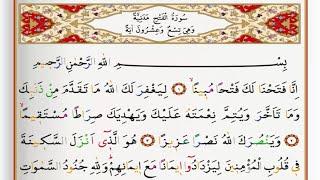 سُورَةُ الْفَتْحِ مَدَنِيَّةٌ
وَهِيَ تِسْعٌ وَعِشْرُونَ اٰيَةً
بِسْمِ اللّٰهِ الرَّحْمٰنِ الرَّحِيمِ
اِنَّا فَتَحْنَا لَكَ فَتْحًا مُبِينًا ۙ لِيَغْفِرَ لَكَ اللّٰهُ مَا تَقَدَّمَ مِنْ ذَنْبِكَ
وَمَا تَاَخَّرَ وَيُتِمَّ نِعْمَتَهُ عَلَيْكَ وَيَهْدِيَكَ صِرَاطًا مُسْتَقِيمًا ۙ
وَيَنْصُرَكَ اللّٰهُ نَصْرًا عَزِيزًا هُوَ الَّذٖٓي اَنْزَلَ السَّكِينَةَ
فِي قُلُوبِ الْمُؤْمِنِينَ لِيَزْدَادُٓوا اِيمَانًا مَعَ اِيمَانِهِمْ وَلِلّٰهِ جُنُودُ السَّمٰوَاتِ